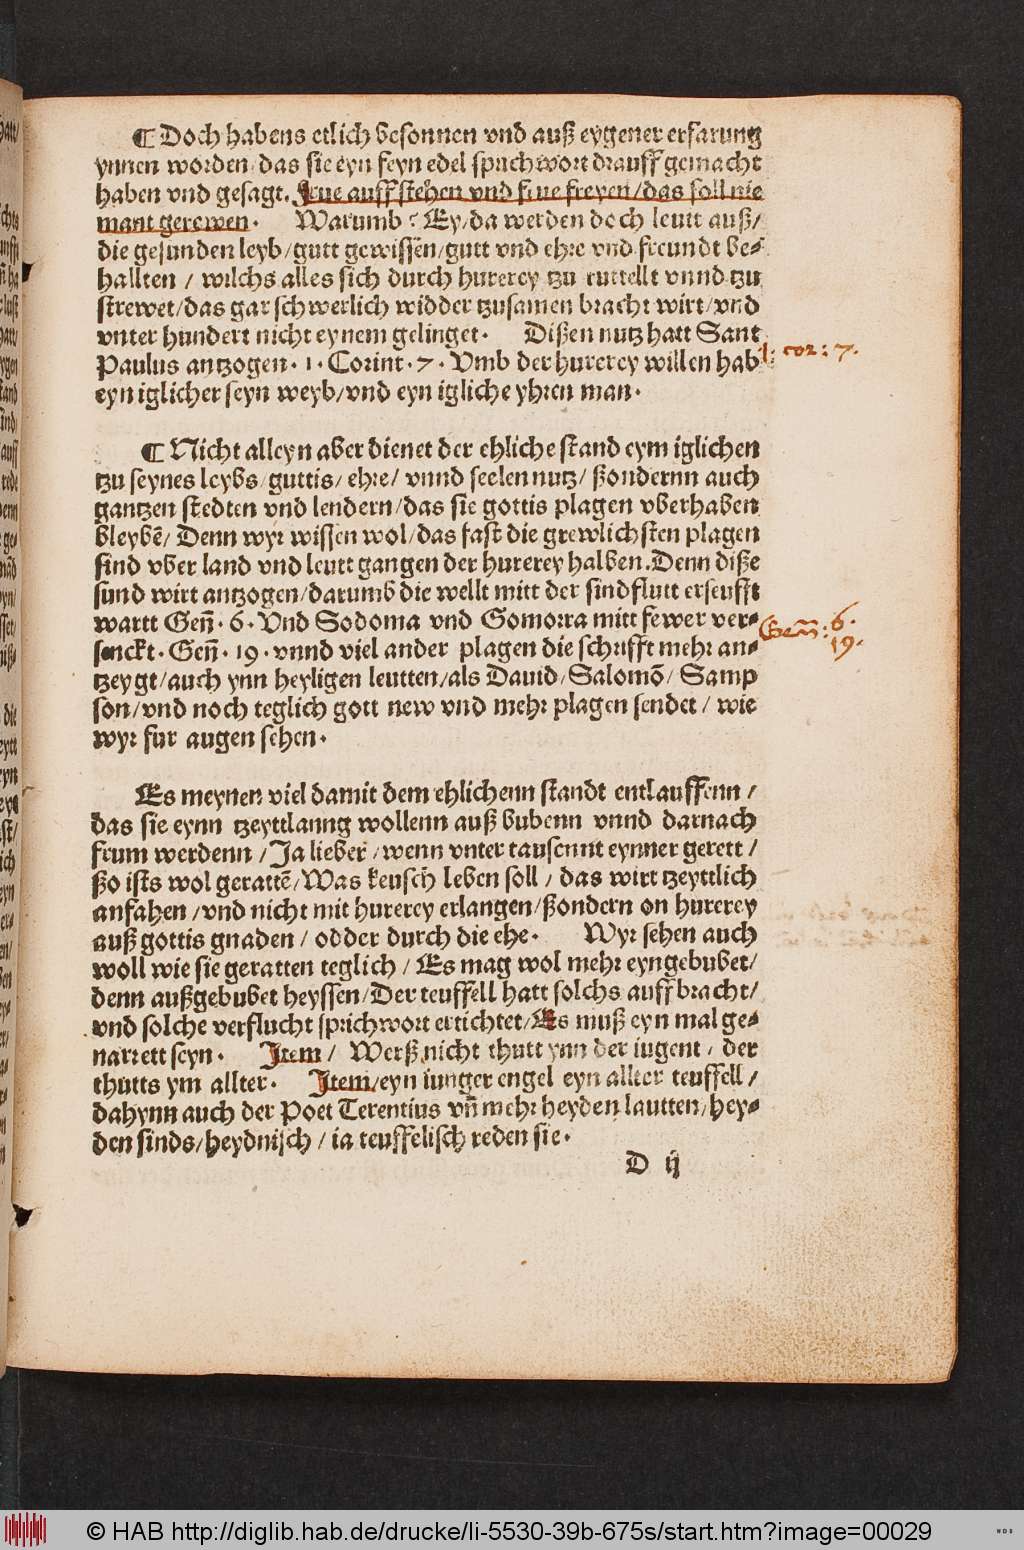 ¶ Doch habens etlich besonnen vnd auß eygener erfarung
ynnen worden/das sie eyn feyn edel sprichwort drauff gemacht
haben vnd gesagt. Frue auffstehen vnd frue freyen/das soll nie
mant gerewen. Warumb? Ey/da werden doch leutt auß/
die gesunden leyb/gutt gewissen/gutt vnd ehre vnd freundt be-
hallten / wilchs alles sich durch hurerey tzu ruttellt vnnd tzu
strewet/das gar schwerlich widder tzusamen bracht wirt/vnd
vnter hundert nicht eynem gelinget. Dißen nutz hatt Sant
Paulus antzogen. 1. Corint. 7. Vmb der hurerey willen hab
1: cor: 7.
eyn iglicher seyn weyb/vnd eyn igliche yhren man.
¶ Nicht alleyn aber dienet der ehliche stand eym iglichen
tzu seynes leybs/guttis/ehre/ vnnd seelen nutz/ ßondernn auch
gantzen stedten vnd lendern/das sie gottis plagen vberhaben
bleybē/ Denn wyr wissen wol/das fast die grewlichsten plagen
sind vber land vnd leutt gangen der hurerey halben. Denn diße
sund wirt antzogen/darumb die wellt mitt der sindflutt erseufft
wartt Geñ. 6. Vnd Sodoma vnd Gomorra mitt fewer ver-
Geñ: 6.
senckt. Geñ. 19. vnnd viel ander plagen die schrifft mehr an-
19.
tzeygt/auch ynn heyligen leutten/als Dauid/Salomō/ Samp
son/vnd noch teglich gott new vnd mehr plagen sendet / wie
wyr fur augen sehen.
Es meynen viel damit dem ehlichenn standt entlauffenn /
das sie eynn tzeyttlanng wollenn auß bubenn vnnd darnach
frum werdenn / Ja lieber /wenn vnter tausennt eynner gerett /
ßo ists wol gerattē/Was keusch leben soll / das wirt tzeyttlich
anfahen /vnd nicht mit hurerey erlangen/ßondern on hurerey
auß gottis gnaden / odder durch die ehe. Wyr sehen auch
woll wie sie geratten teglich / Es mag wol mehr eyngebubet/
denn außgebubet heyssen/Der teuffell hatt solchs auffbracht/
vnd solche verflucht sprichwort ertichtet/Es muß eyn mal ge-
narrett seyn. Item / Werß nicht thutt ynn der iugent / der
thutts ym allter. Item/eyn iunger engel eyn allter teuffell /
dahynn auch der Poet Terentius vñ mehr heyden lautten/hey-
den sinds/heydnisch / ia teuffelisch reden sie.
D ij
© HAB http://diglib.hab.de/drucke/li-5530-39b-675s/start.htm?image=00029